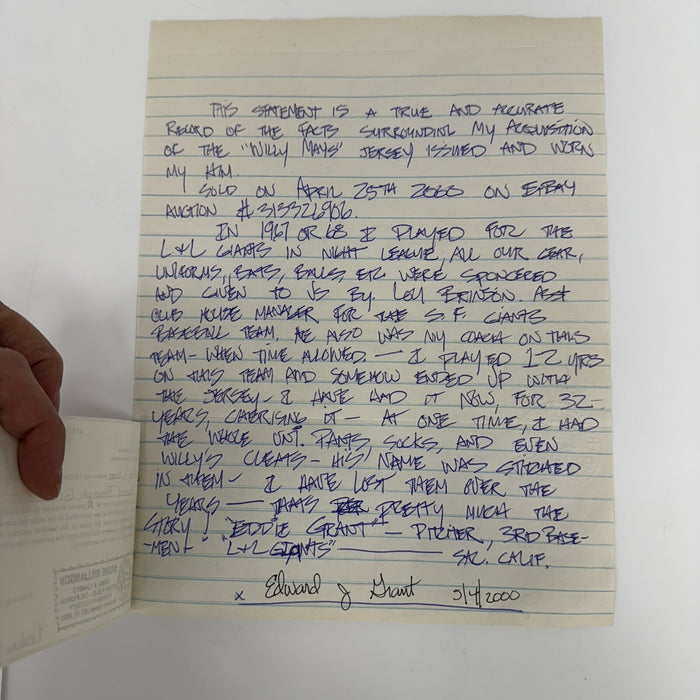 THIS STATEMENT IS A TRUE AND ACCURATE
RECORD OF THE FACTS SURROUNDING MY ACQUISITION
OF THE "WILLY MAYS" JERSEY ISSUED AND WORN
MY HIM.
SOLD ON APRIL 25TH 2000 ON E-BAY
AUCTION # 313326906.
IN 1967 OR 68 I PLAYED FOR THE
L+L GIANTS IN NIGHT LEAGUE, ALL OUR GEAR,
UNIFORMS, BATS, BALLS, ETC WERE SPONCERED
AND GIVEN TO US BY. LEN BRINSON. ASST
CLUB HOUSE MANAGER FOR THE S.F. GIANTS
BASEBALL TEAM. HE ALSO WAS MY COACH ON THIS
TEAM - WHEN TIME ALLOWED. — I PLAYED 12 YRS
ON THIS TEAM AND SOMEHOW ENDED UP WITH
THE JERSEY - I HAVE HAD IT NOW, FOR 32-
YEARS, CHERISING IT - AT ONE TIME, I HAD
THE WHOLE UNI. PANTS, SOCKS, AND EVEN
WILLY'S CLEATS - HIS NAME WAS STITCHED
IN THEM - I HAVE LOST THEM OVER THE
YEARS — THATS PRETTY MUCH THE
STORY! "EDDIE GRANT" - PITCHER, 3RD BASE-
-MEN - "L+L GIANTS" — SAC. CALIF.
x Edward J Grant 5/4/2000